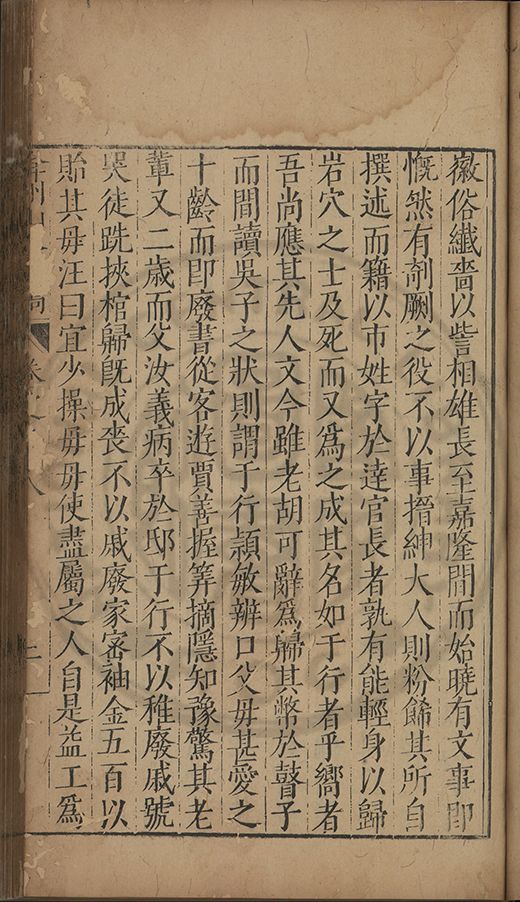 徽俗纖嗇以訾相雄長至嘉隆間而始曉有文事即
慨然有剞劂之役不以事搢紳大人則粉餙其所自
撰述而籍以市姓字於達官長者孰有能輕身以歸
岩穴之士及死而又爲之成其名如于行者乎嚮者
吾尚應其先人文今雖老胡可辭爲歸其幣於瞽子
而間讀吳子之狀則謂于行頴敏辨口父毋甚愛之
十齡而即廢書從客遊賈善握筭摘隱知豫驚其老
輩又二歲而父汝義病卒於邸于行不以稚廢戚號
哭徒跣挾棺歸旣成喪不以戚廢家宻袖金五百以
貽其毋汪曰宜少操毋毋使盡屬之人自是益工爲
卷之